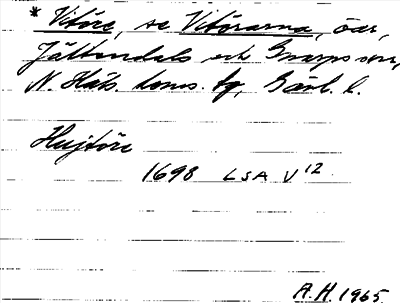 * Vitöre, se Vitörarna, öar,
Jättendals och Gnarps snr,
N. Häls. doms. tg, Gävl. l.
Hujtöre
1698 LSA V 12
A.H. 1965